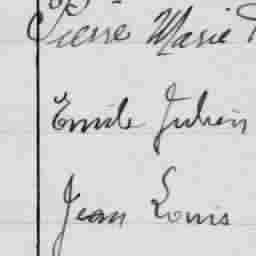 Pierre Marie
Emile Julien
Jean Louis